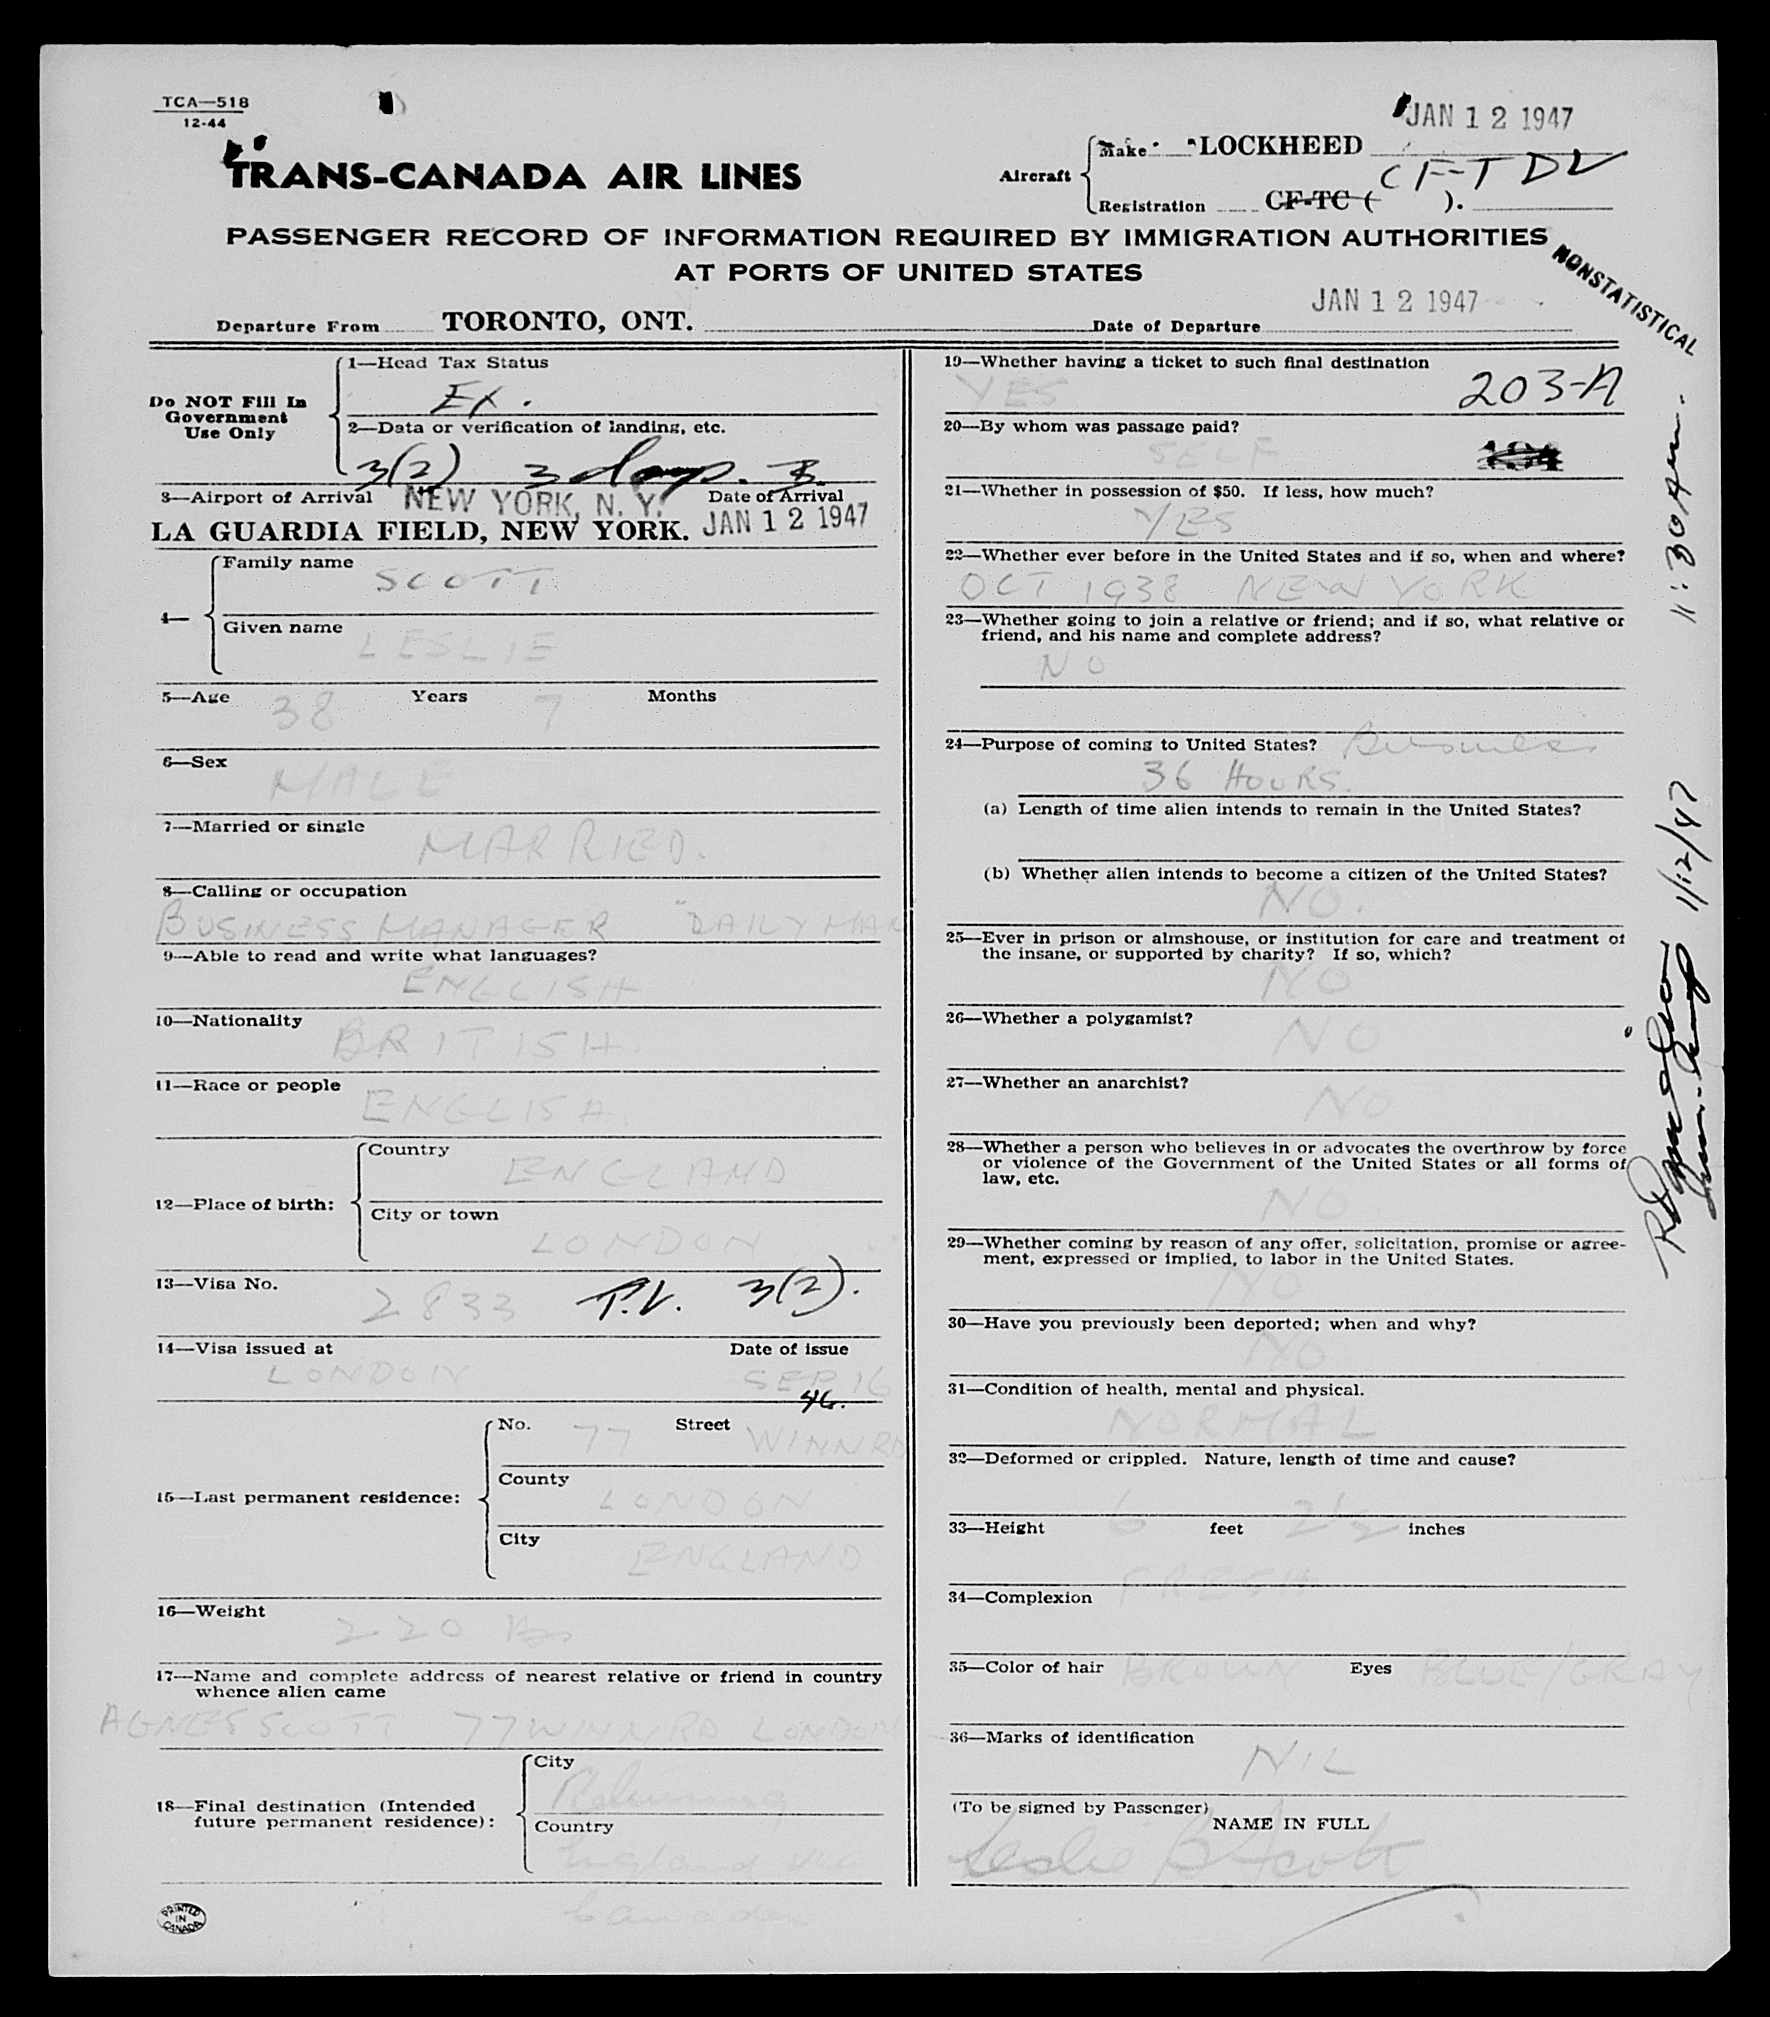 TCA—518
12-44
JAN 12 1947
TRANS-CANADA AIR LINES
Aircraft
Make LOCKHEED
CF-TDV
Registration CF-TC ( ).
PASSENGER RECORD OF INFORMATION REQUIRED BY IMMIGRATION AUTHORITIES
AT PORTS OF UNITED STATES
NONSTATISTICAL
Departure From TORONTO, ONT. Date of Departure JAN 12 1947
Do NOT Fill In
Government
Use Only
1—Head Tax Status
Ex.
2—Data or verification of landing, etc.
3(2) 3 days.
3—Airport of Arrival NEW YORK, N. Y. Date of Arrival
LA GUARDIA FIELD, NEW YORK. JAN 12 1947
4—
Family name SCOTT
Given name LESLIE
5—Age 38 Years 7 Months
6—Sex MALE
7—Married or single MARRIED.
8—Calling or occupation
BUSINESS MANAGER "DAILY
9—Able to read and write what languages?
ENGLISH
10—Nationality BRITISH.
11—Race or people ENGLISH.
12—Place of birth:
Country ENGLAND
City or town LONDON
13—Visa No. 2833 P.V. 3(2).
14—Visa issued at Date of issue
LONDON SEP 16
46.
15—Last permanent residence:
No. 77 Street WINN RD
County LONDON
City ENGLAND
16—Weight 220 lbs
17—Name and complete address of nearest relative or friend in country
whence alien came
AGNES SCOTT 77 WINN RD LONDON
18—Final destination (Intended
future permanent residence):
City Returning
Country England via
Canada
PRINTED
IN
CANADA
19—Whether having a ticket to such final destination
YES 203-A
20—By whom was passage paid?
SELF 194
21—Whether in possession of $50. If less, how much?
YES
22—Whether ever before in the United States and if so, when and where?
OCT 1938 NEW YORK
23—Whether going to join a relative or friend; and if so, what relative or
friend, and his name and complete address?
NO
24—Purpose of coming to United States? Business
36 HOURS.
(a) Length of time alien intends to remain in the United States?
(b) Whether alien intends to become a citizen of the United States?
NO.
25—Ever in prison or almshouse, or institution for care and treatment of
the insane, or supported by charity? If so, which?
NO
26—Whether a polygamist?
NO
27—Whether an anarchist?
NO
28—Whether a person who believes in or advocates the overthrow by force
or violence of the Government of the United States or all forms of
law, etc.
NO
29—Whether coming by reason of any offer, solicitation, promise or agree-
ment, expressed or implied, to labor in the United States.
NO
30—Have you previously been deported; when and why?
NO
31—Condition of health, mental and physical.
NORMAL
32—Deformed or crippled. Nature, length of time and cause?
33—Height 6 feet 2½ inches
34—Complexion FRESH
35—Color of hair BROWN Eyes BLUE/GRAY
36—Marks of identification
NIL
(To be signed by Passenger)
NAME IN FULL
Leslie B Scott
11:30 Am.
1/12/47